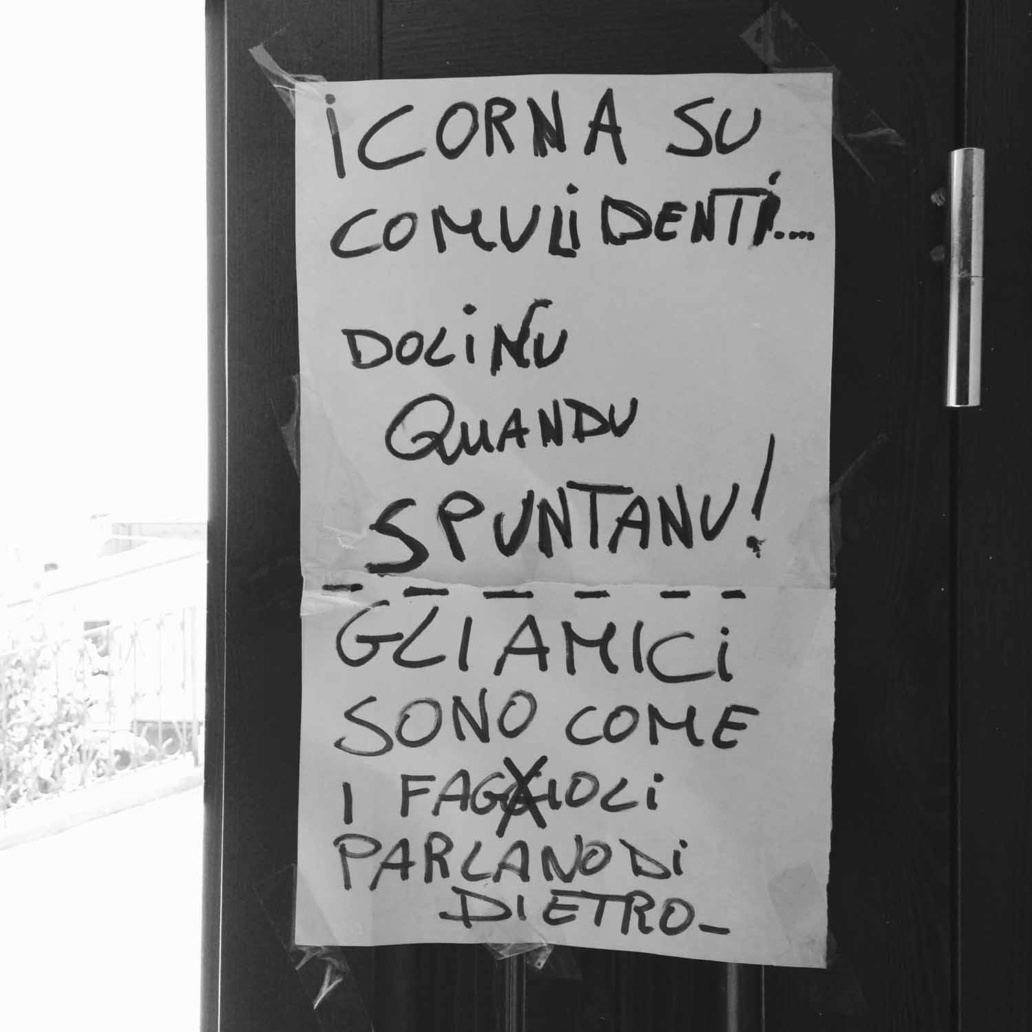 i CORNA SU
COMU Li DENTi....
DOLiNU
QUANDU
SPUNTANU!
GLI AMICi
SONO COME
I FAGIOLi
PARLANO Di
DIETRO_